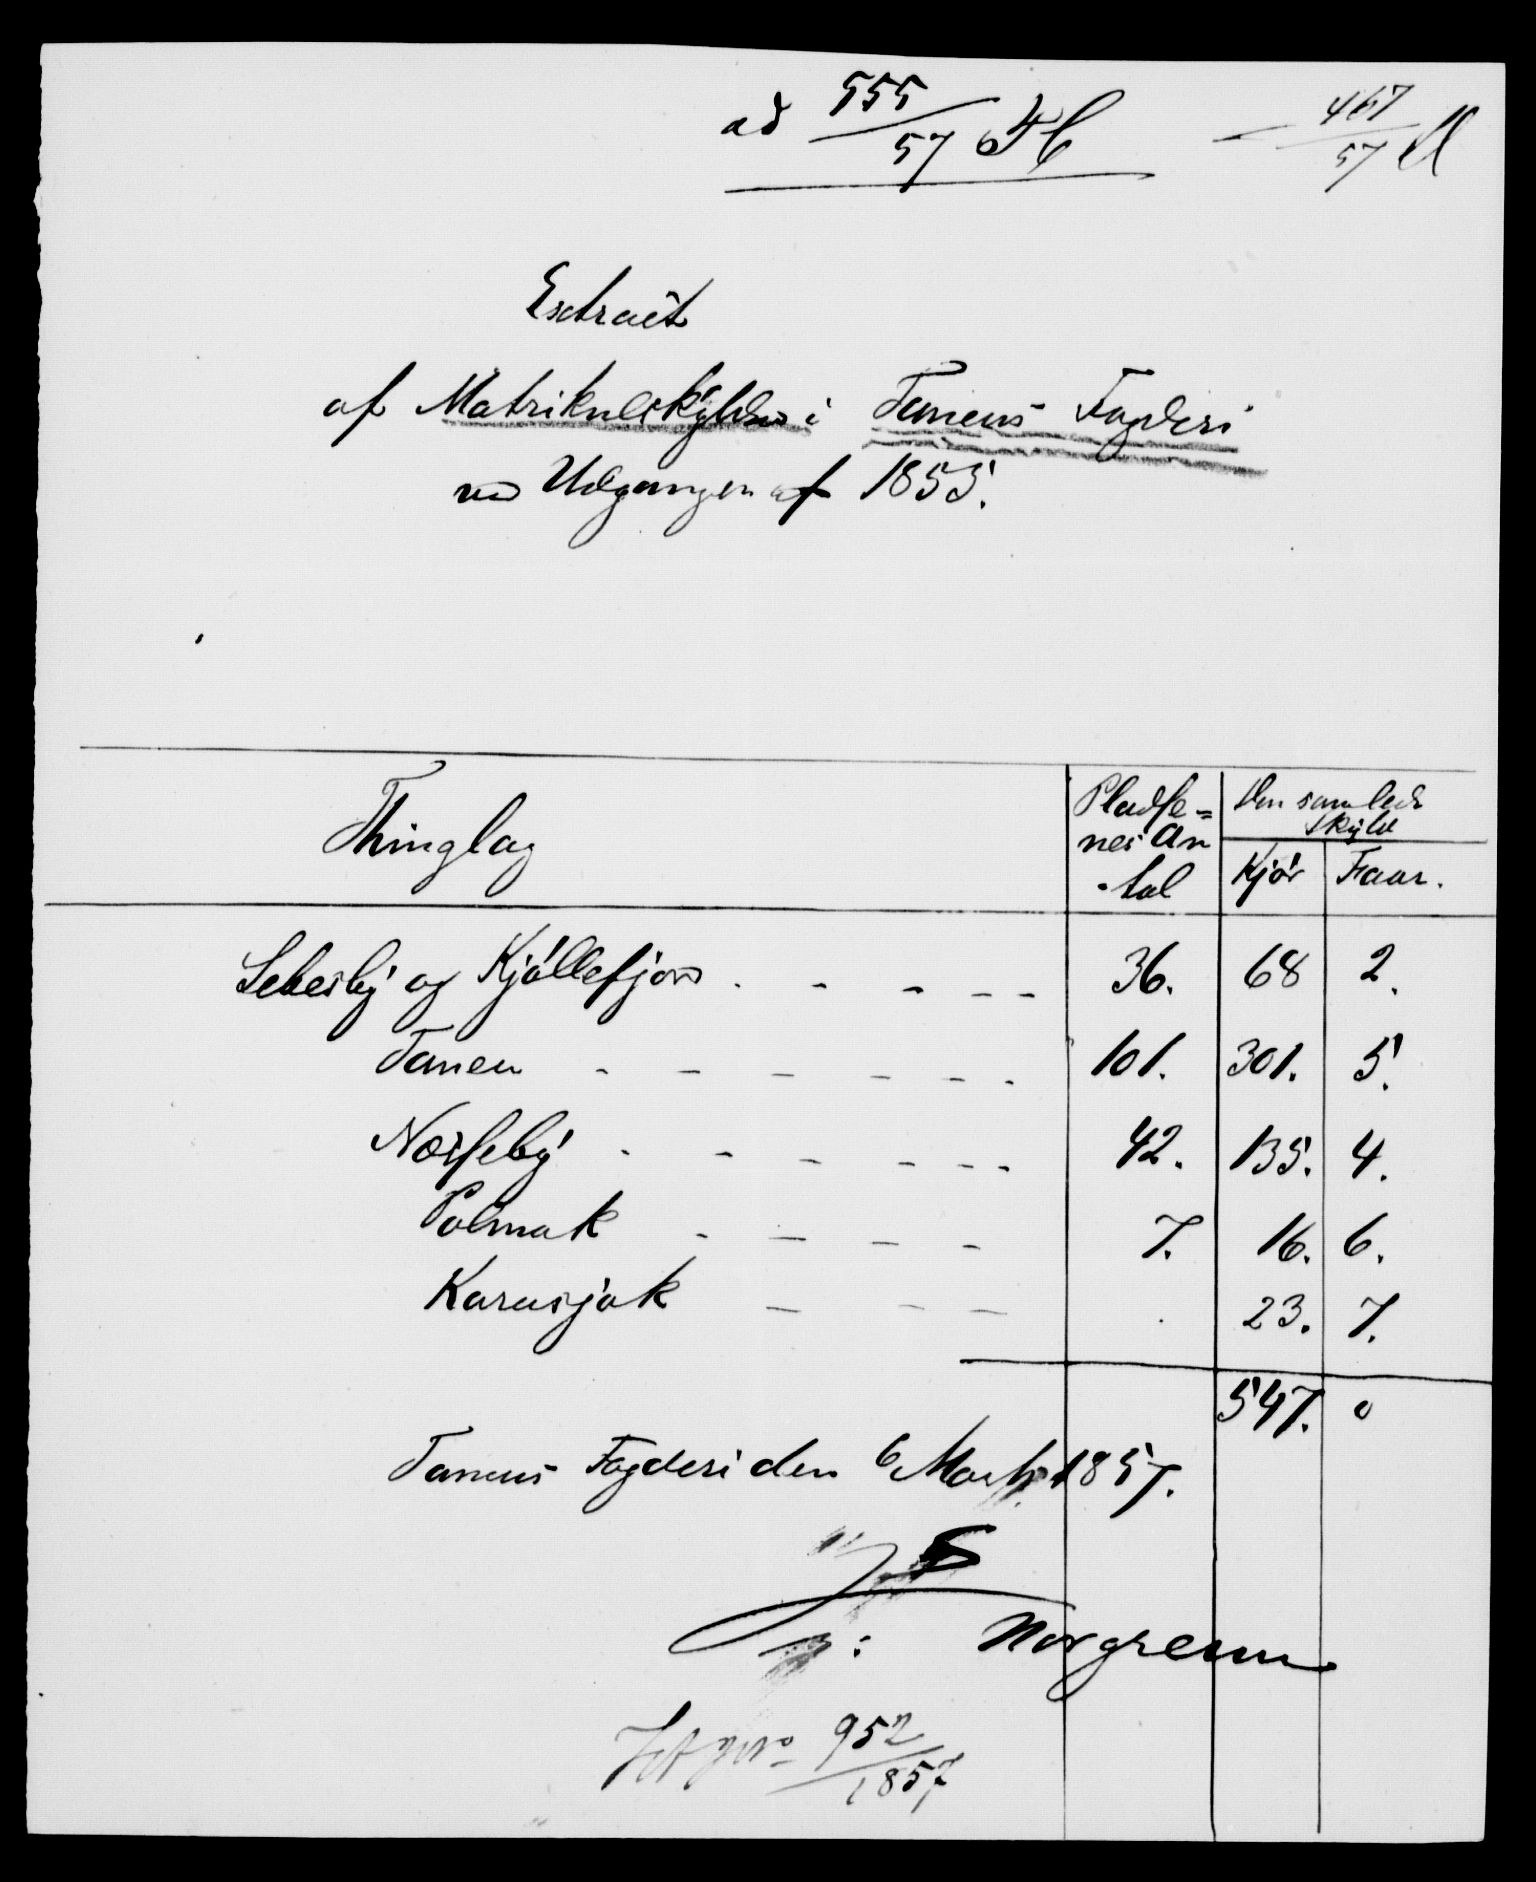 ad 555/57
467/57
Extract
af Matrikulskylden i Tanens Fogderi
ved Udgangen af 1855.
Thinglag
Pladse=
nes An
-tal
Den samlede
Skyld
Kjør
Faar.
Lebesby og Kjøllefjord . - - - - - 36. 68 2.
Tanen - - - - - - 101. 301. 5.
Næsseby - - - - - - 42. 135. 4.
Polmak - - - - 7. 16. 6.
Karasjok - - - . 23. 7.
547. 0
Tanens Fogderi den 6 Marts 1857.
Norgreenn
952/1857